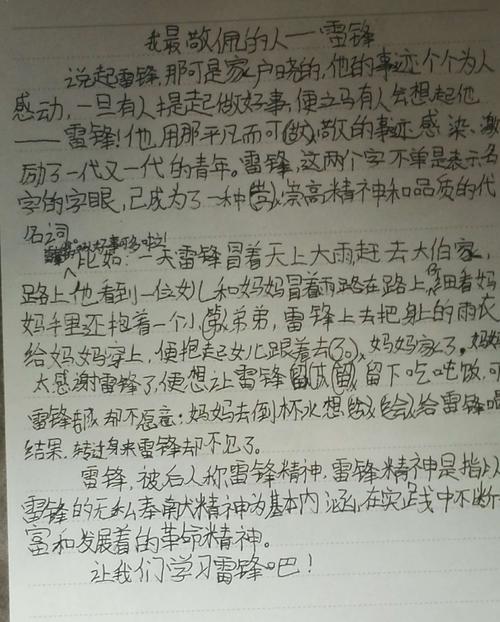 我最敬佩的人——雷锋
说起雷锋,那可是家户晓的,他的事迹个个为人
感动,一旦有人提起做好事,便立马有人会想起他
——雷锋!他用那平凡而可敬的事迹感染、激
励了一代又一代的青年。雷锋,这两个字不单是表示名
字的字眼,已成为了一种崇高精神和品质的代
名词
好事可多啦!
比如:一天雷锋冒着天上大雨赶去大伯家,
路上他看到一位女儿和妈妈冒着雨路在路上,仔细看妈
妈手里还抱着一个小弟弟,雷锋上去把身上的雨衣
给妈妈穿上,便抱起女儿跟着去了。妈妈家了。妈妈
太感谢雷锋了,便想让雷锋留下吃吨饭,可
雷锋却不愿意;妈妈去倒杯水想给雷锋喝
结果,转过身来雷锋却不见了。
雷锋,被后人称雷锋精神,雷锋精神是指以
雷锋的无私奉献精神为基本内涵,在实践中不断
富和发展着的革命精神。
让我们学习雷锋吧!